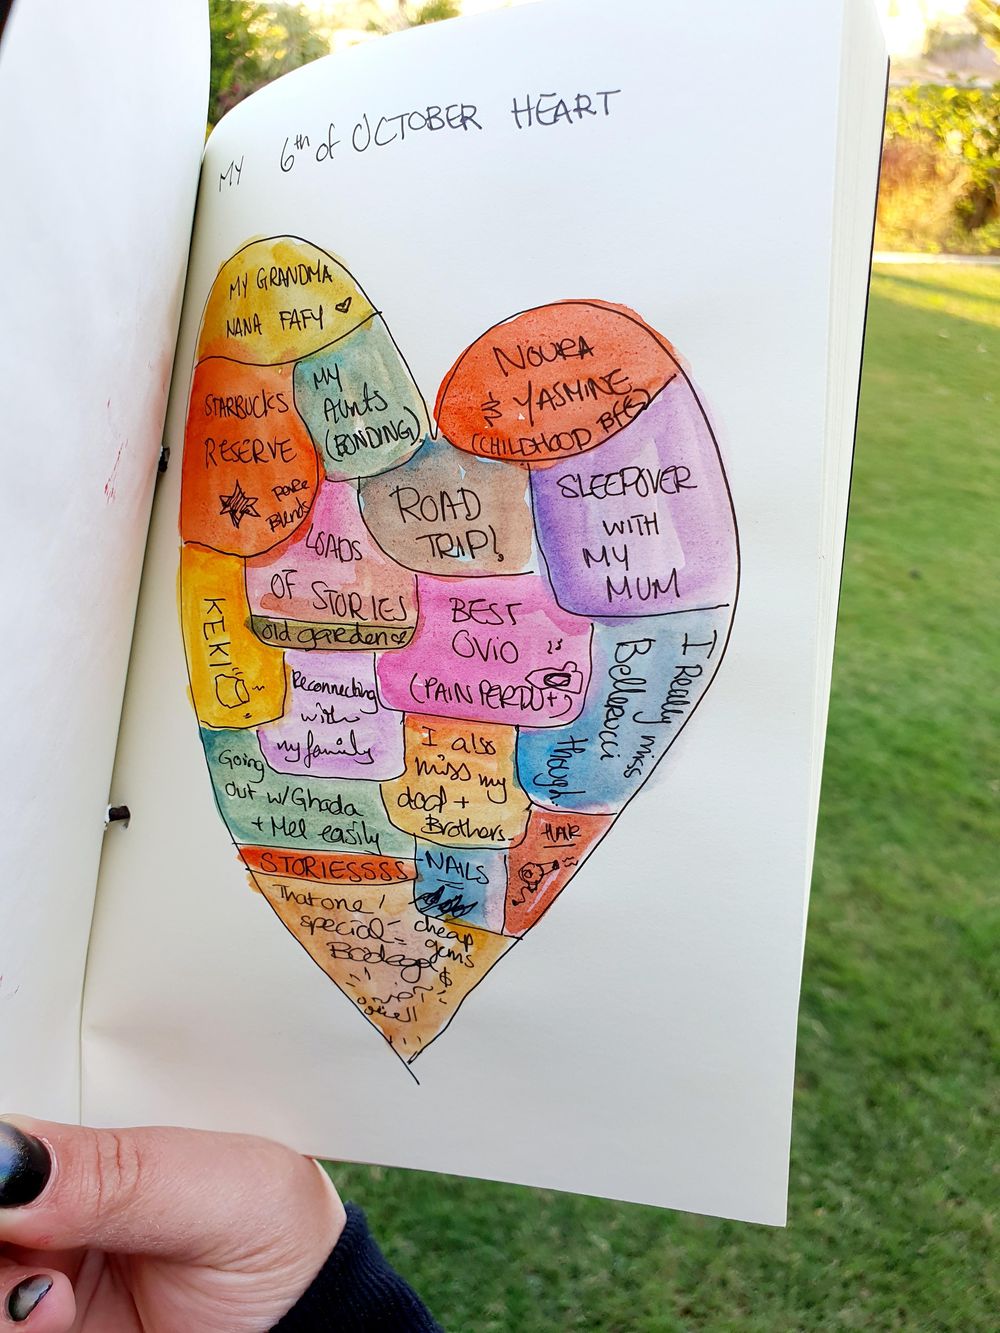 MY 6th of OCTOBER HEART
MY GRANDMA
NANA FAFY
STARBUCKS
RESERVE
Rare
Blends
MY
AUNTS
(BONDING)
NOURA
& YASMINE
(CHILDHOOD BFFS)
ROAD
TRIP!
SLEEPOVER
WITH
MY
MUM
LOADS
OF STORIES
old gardens
KEKI
BEST
OVIO
(PAIN PERDU+)
Reconnecting
with
my family
I Really miss
Bellevicci
though.
Going
out w/Ghada
+ Mel easily
I also
miss my
dad +
Brothers
STORIESSSS
NAILS
HAIR
That one
special
cheap
gems
$